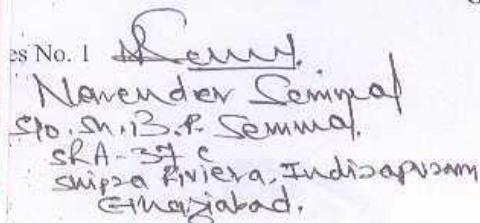 es No. 1
Narender Semwal
S/o. Sh. B.P. Semwal.
SRA-37 C
Shipra Riviera, Indirapuram
Ghaziabad.